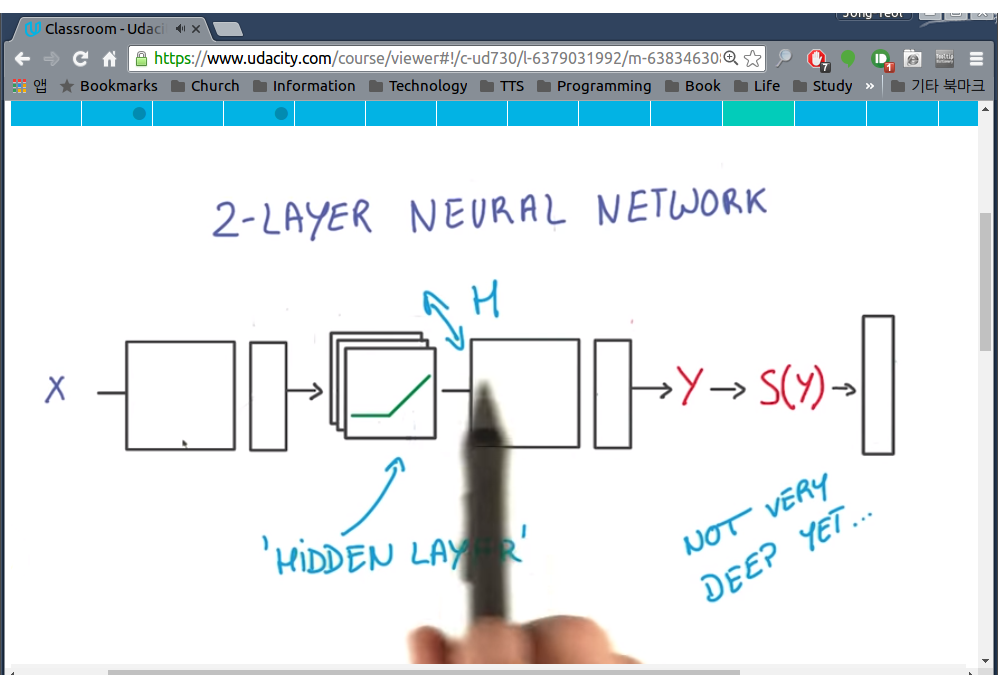 Classroom - Udaci
https://www.udacity.com/course/viewer#!/c-ud730/l-6379031992/m-63834630
7
1
앱 Bookmarks Church Information Technology TTS Programming Book Life Study » 기타 북마크
2-LAYER NEURAL NETWORK
H
X
Y
S(Y)
'HIDDEN LAYER'
NOT VERY
DEEP YET...